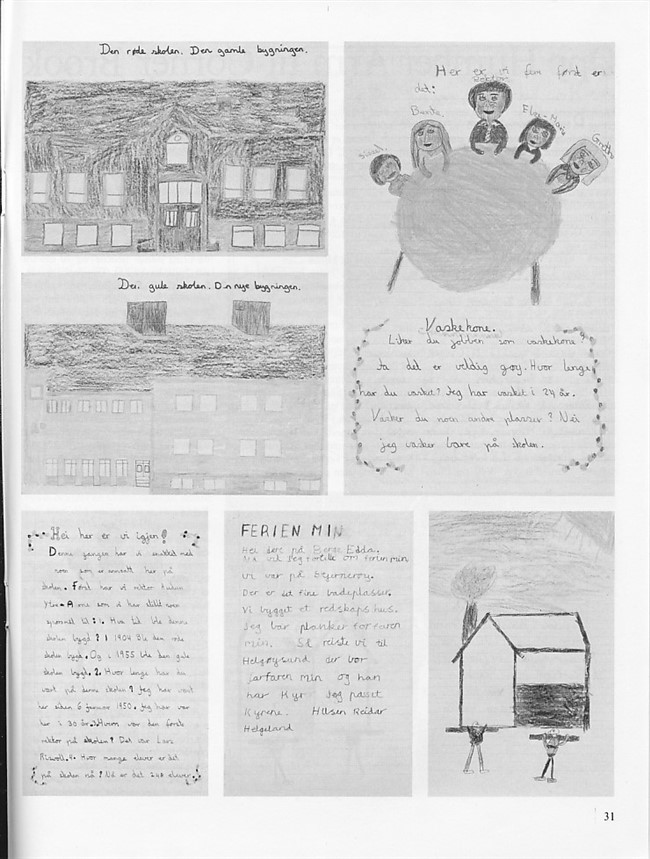 Den røde skolen. Den gamle bygningen.
Her er vi fem først er
det:
Bente.
Elsa-Marie
Grethe
Sissel.
Den gule skolen. Den nye bygningen.
Vaskehone.
Liker du jobben som vaskehone?
Ja det er veldig gøy. Hvor lenge
har du vasket? Jeg har vasket i 24 år.
Vasker du noen andre plasser? Nei
jeg vasker bare på skolen.
Hei her er vi igjen!
Denne gangen har vi snakket med
noen som er ansatt her på
skolen. Først har vi rektor
som vi har stild noen
spørsmål til: 1. Hva tid ble denne
skolen bygd? I 1904 ble den røde
skolen bygd. Og i 1955 ble den gule
skolen bygd. 2. Hvor lenge har du
vært på denne skolen? Jeg har vært
her siden 6 januar 1950. Jeg har vær
her i 30 år. 3. Hvem var den første
rektor på skolen? Det var Lars
4. Hvor mange elever er det
på skolen nå? Nå er det 248 elever.
FERIEN MIN
Hei dere på Børge Edda.
Nå vil jeg fortelle om ferien min
Vi var på bjørnerøy.
Der er det fine badeplasser.
Vi bygget et redskapshus.
Jeg bar planker for faren
min. Så reiste vi til
Helgøysund der bor
farfaren min og han
har Kyr Jeg passet
Kyrene. Hilsen Reidar
Helgeland
31